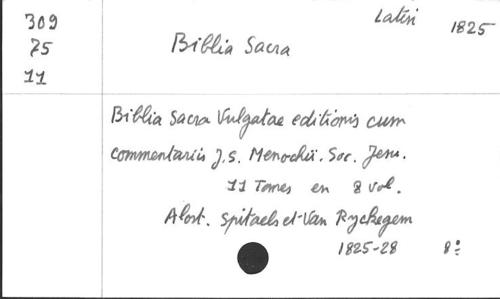 309
75
11
Latin 1825
Biblia Sacra
Biblia Sacra Vulgatae editionis cum
commentariis J.S. Menochii. Soc. Jesu.
11 Tomes en 8 vol.
Alost. Spitaels et Van Ryckegem
1825-28 8°